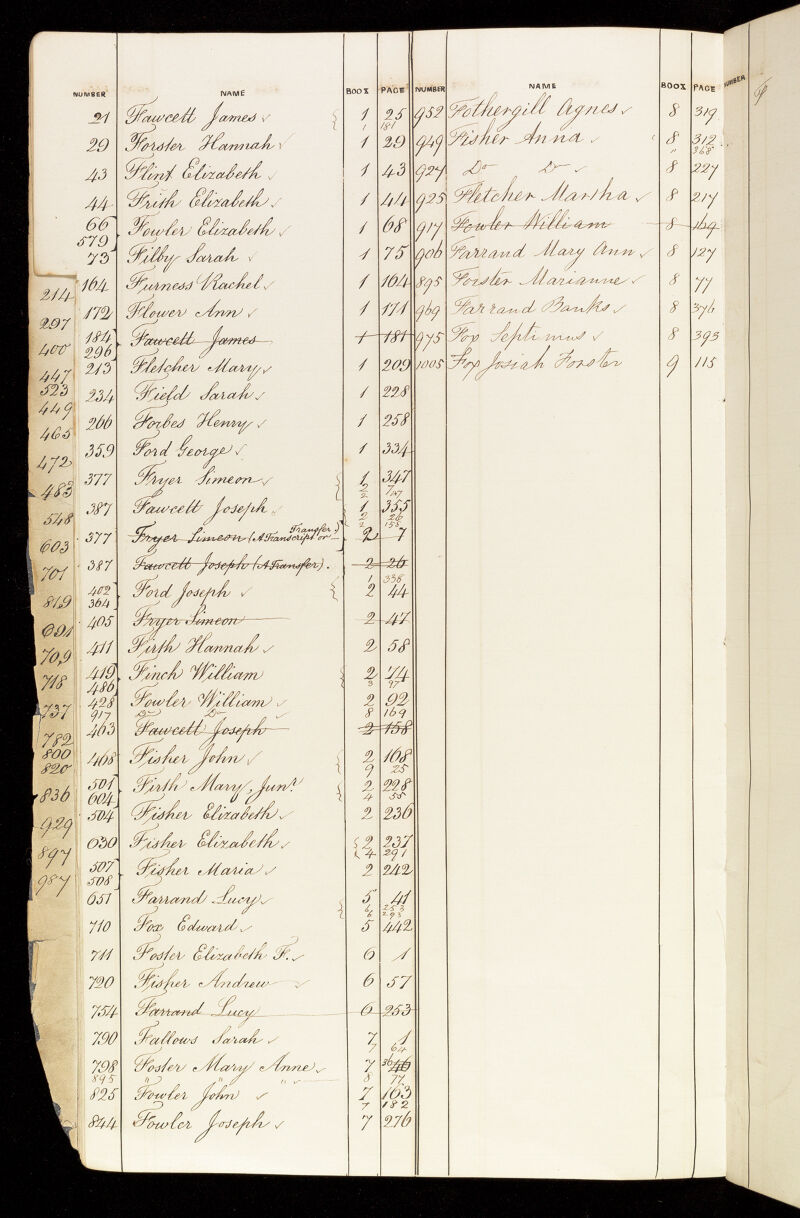 NUMBER NAME BOOK PAGE NUMBER NAME BOOK PAGE NUMBER
21 Fawcett James 1 25
1 181
29 Forster Hannah 1 29
43 Flint Elizabeth 1 43
44 Frith Elizabeth 1 44
66
579 Fowler Elizabeth 1 68
73 Filby Sarah 1 75
164 Furness Rachel 1 164
172 Flower Ann 1 171
184
296 Fawcett James 1 181
213 Fletcher Mary 1 209
234 Field Sarah 1 228
266 Forbes Henry 1 258
359 Ford George 1 334
377 Fryer Simeon 1 347
2 7
2
387 Fawcett Joseph 1 355
2 26
2 158
377 Fryer Simeon (A Transcript or Transfer) 2 7
387 Fawcett Joseph (A Transfer). 2 26
1 338
402
364 Ford Joseph 2 44
405 Fryer Simeon 2 47
411 Firth Hannah 2 58
419
486 Finch William 2 74
3 97
428 Fowler William 2 92
917 Do Do 8 169
463 Fawcett Joseph 2 158
468 Fisher John 2 168
9 25
501
604 Firth Mary, Junr 2 228
4 55
504 Fisher Elizabeth 2 236
630 Fisher Elizabeth 2 237
4 291
507
508 Fisher Maria 2 242
651 Farrand Lucy 5 41
6 253
6 293
710 Fox Edward 5 442
711 Foster Elizabeth F. 6 1
720 Fisher Andrew 6 57
754 Farrand Lucy 6 253
790 Fallows Sarah 7 1
7 64
798 Foster Mary Anne 7 46
895 " " " 8 77
825 Fowler John 7 163
7 182
844 Fowler Joseph 7 276
952 Fothergill Agnes 8 319
949 Fisher Anna 8 312
" 368
927 Do Do 8 227
925 Fletcher Martha 8 217
917 Fowler William 8 169
906 Farrand Mary Ann 8 127
895 Forster Marianne 8 77
969 Farrand Banks 8 376
975 Fox Septimus 8 393
1005 Fox Josiah Forster 9 115
214
297
400
447
523
449
465
472
483
548
603
701
819
691
709
718
737
782
800
820
836
929
897
987